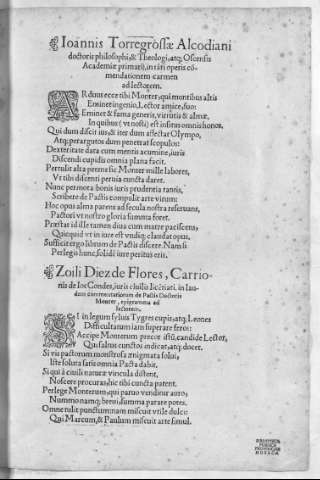 Ioannis Torregrossæ Alcodiani
doctoris philosophi, & Theologi, atq; Oscensis
Academiæ primarij, in tāti operis cō-
mendationem carmen
ad lectorem.
ARduus ecce tibi Monter, qui mentibus altis
Eminet ingenio, Lector amice, suo:
Eminet & fama generis, virtutis & almæ,
In quibus (vt nosti) est insitus omnis honos,
Qui dum discit ius, & iter dum affectat Olympo,
Atq; per argutos dum penetrat scopulos:
Dexteritate data cum mentis acumine, iuris
Discendi cupidis omnia plana facit.
Pertulit alta perense sic Monter mille labores,
Vt tibi discenti peruia cuncta daret.
Nunc permota bonis iuris prudentia tantis,
Scribere de Pactis compulit arte virum:
Hoc opus alma parens ad secula nostra reseruans,
Pactori vt nostro gloria summa foret.
Præstat id ille tamen diua cum matre paciscens,
Quicquid vt in iure est vndiq; claudat opus,
Sufficit ergo librum de Pactis discere. Nam si
Perlegis hunc, solidi iure peritus eris.
Zoili Diez de Flores, Carrio-
nis de los Condes, iuris ciuilis licētiati. in lau-
dem commentariorum de Pactis Doctoris
Monter, epigramma ad
lectorem.
SI in legum syluis Tygres cupis, atq; Leones
Difficultatum iam superare feros:
Accipe Monterum precor istū, candide Lector,
Qui saltus cunctos indicat, atq; docet.
Si vis pactorum monstrosa ænigmata solui,
Iste soluta satis omnia Pacta dabit.
Si qui à ciuili naturæ vincula distent,
Noscere procuras, hic tibi cuncta patent.
Perlege Monterum, qui paruo venditur auro,
Nummo namq; breui, summa parare potes.
Omne tulit punctum: nam miscuit vtile dulci:
Qui Marcum, & Paulum miscuit arte simul.
BIBLIOTECA
PUBLICA
PROVINCIAL
HUESCA